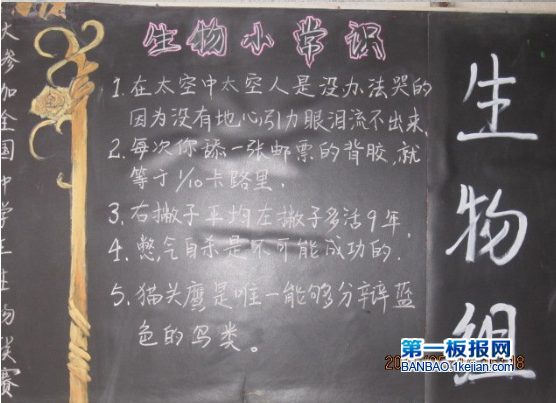 大参加全国中学生生物
生物小常识
1.在太空中太空人是没办法哭的
因为没有地心引力眼泪流不出来.
2.每次你舔一张邮票的背胶,就
等于1/10卡路里.
3.右撇子平均左撇子多活9年.
4.憋气自杀是不可能成功的.
5.猫头鹰是唯一能够分辩蓝
色的鸟类。
生物组
第一板报网
BANBAO.1kejian.com